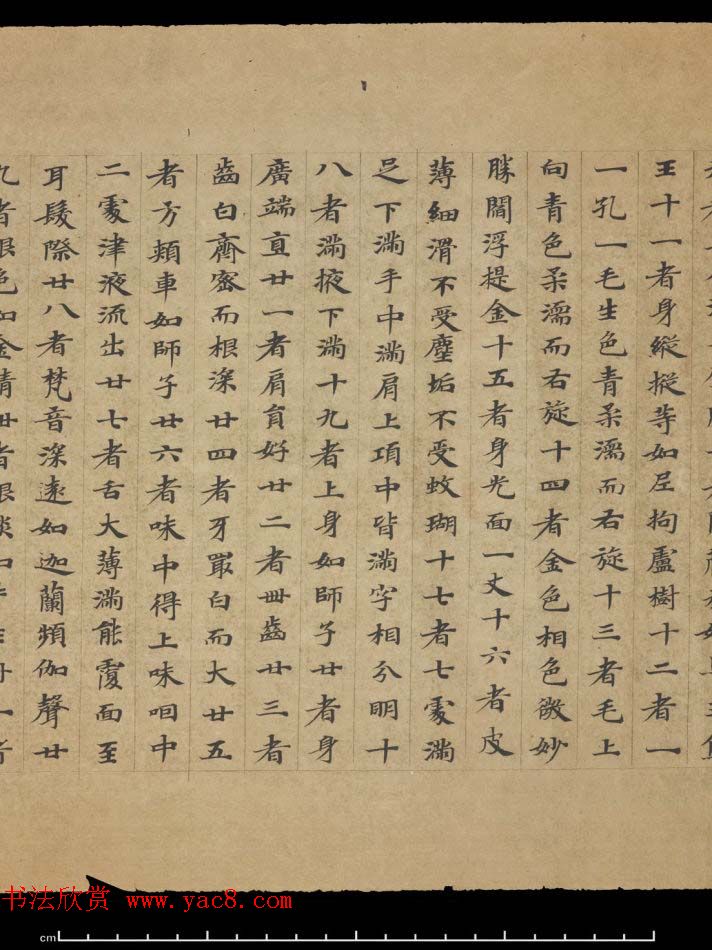 王十一者身縱撗等如尼拘盧樹十二者一
一孔一毛生色青柔濡而右旋十三者毛上
向青色柔濡而右旋十四者金色相色微妙
勝閻浮提金十五者身光面一丈十六者皮
薄細滑不受塵垢不受蚊蝴十七者七處滿
足下滿手中滿肩上項中皆滿字相分明十
八者滿掖下滿十九者上身如師子廿者身
廣端直廿一者肩負好廿二者卌齒廿三者
齒白齊密而根深廿四者牙冣白而大廿五
者方頰車如師子廿六者味中得上味咽中
二處津液流出廿七者舌大薄滿能覆面至
耳髮際廿八者梵音深遠如迦蘭頻伽聲廿
九者眼色如金精卅者眼
书法欣赏 www.yac8.com
cm